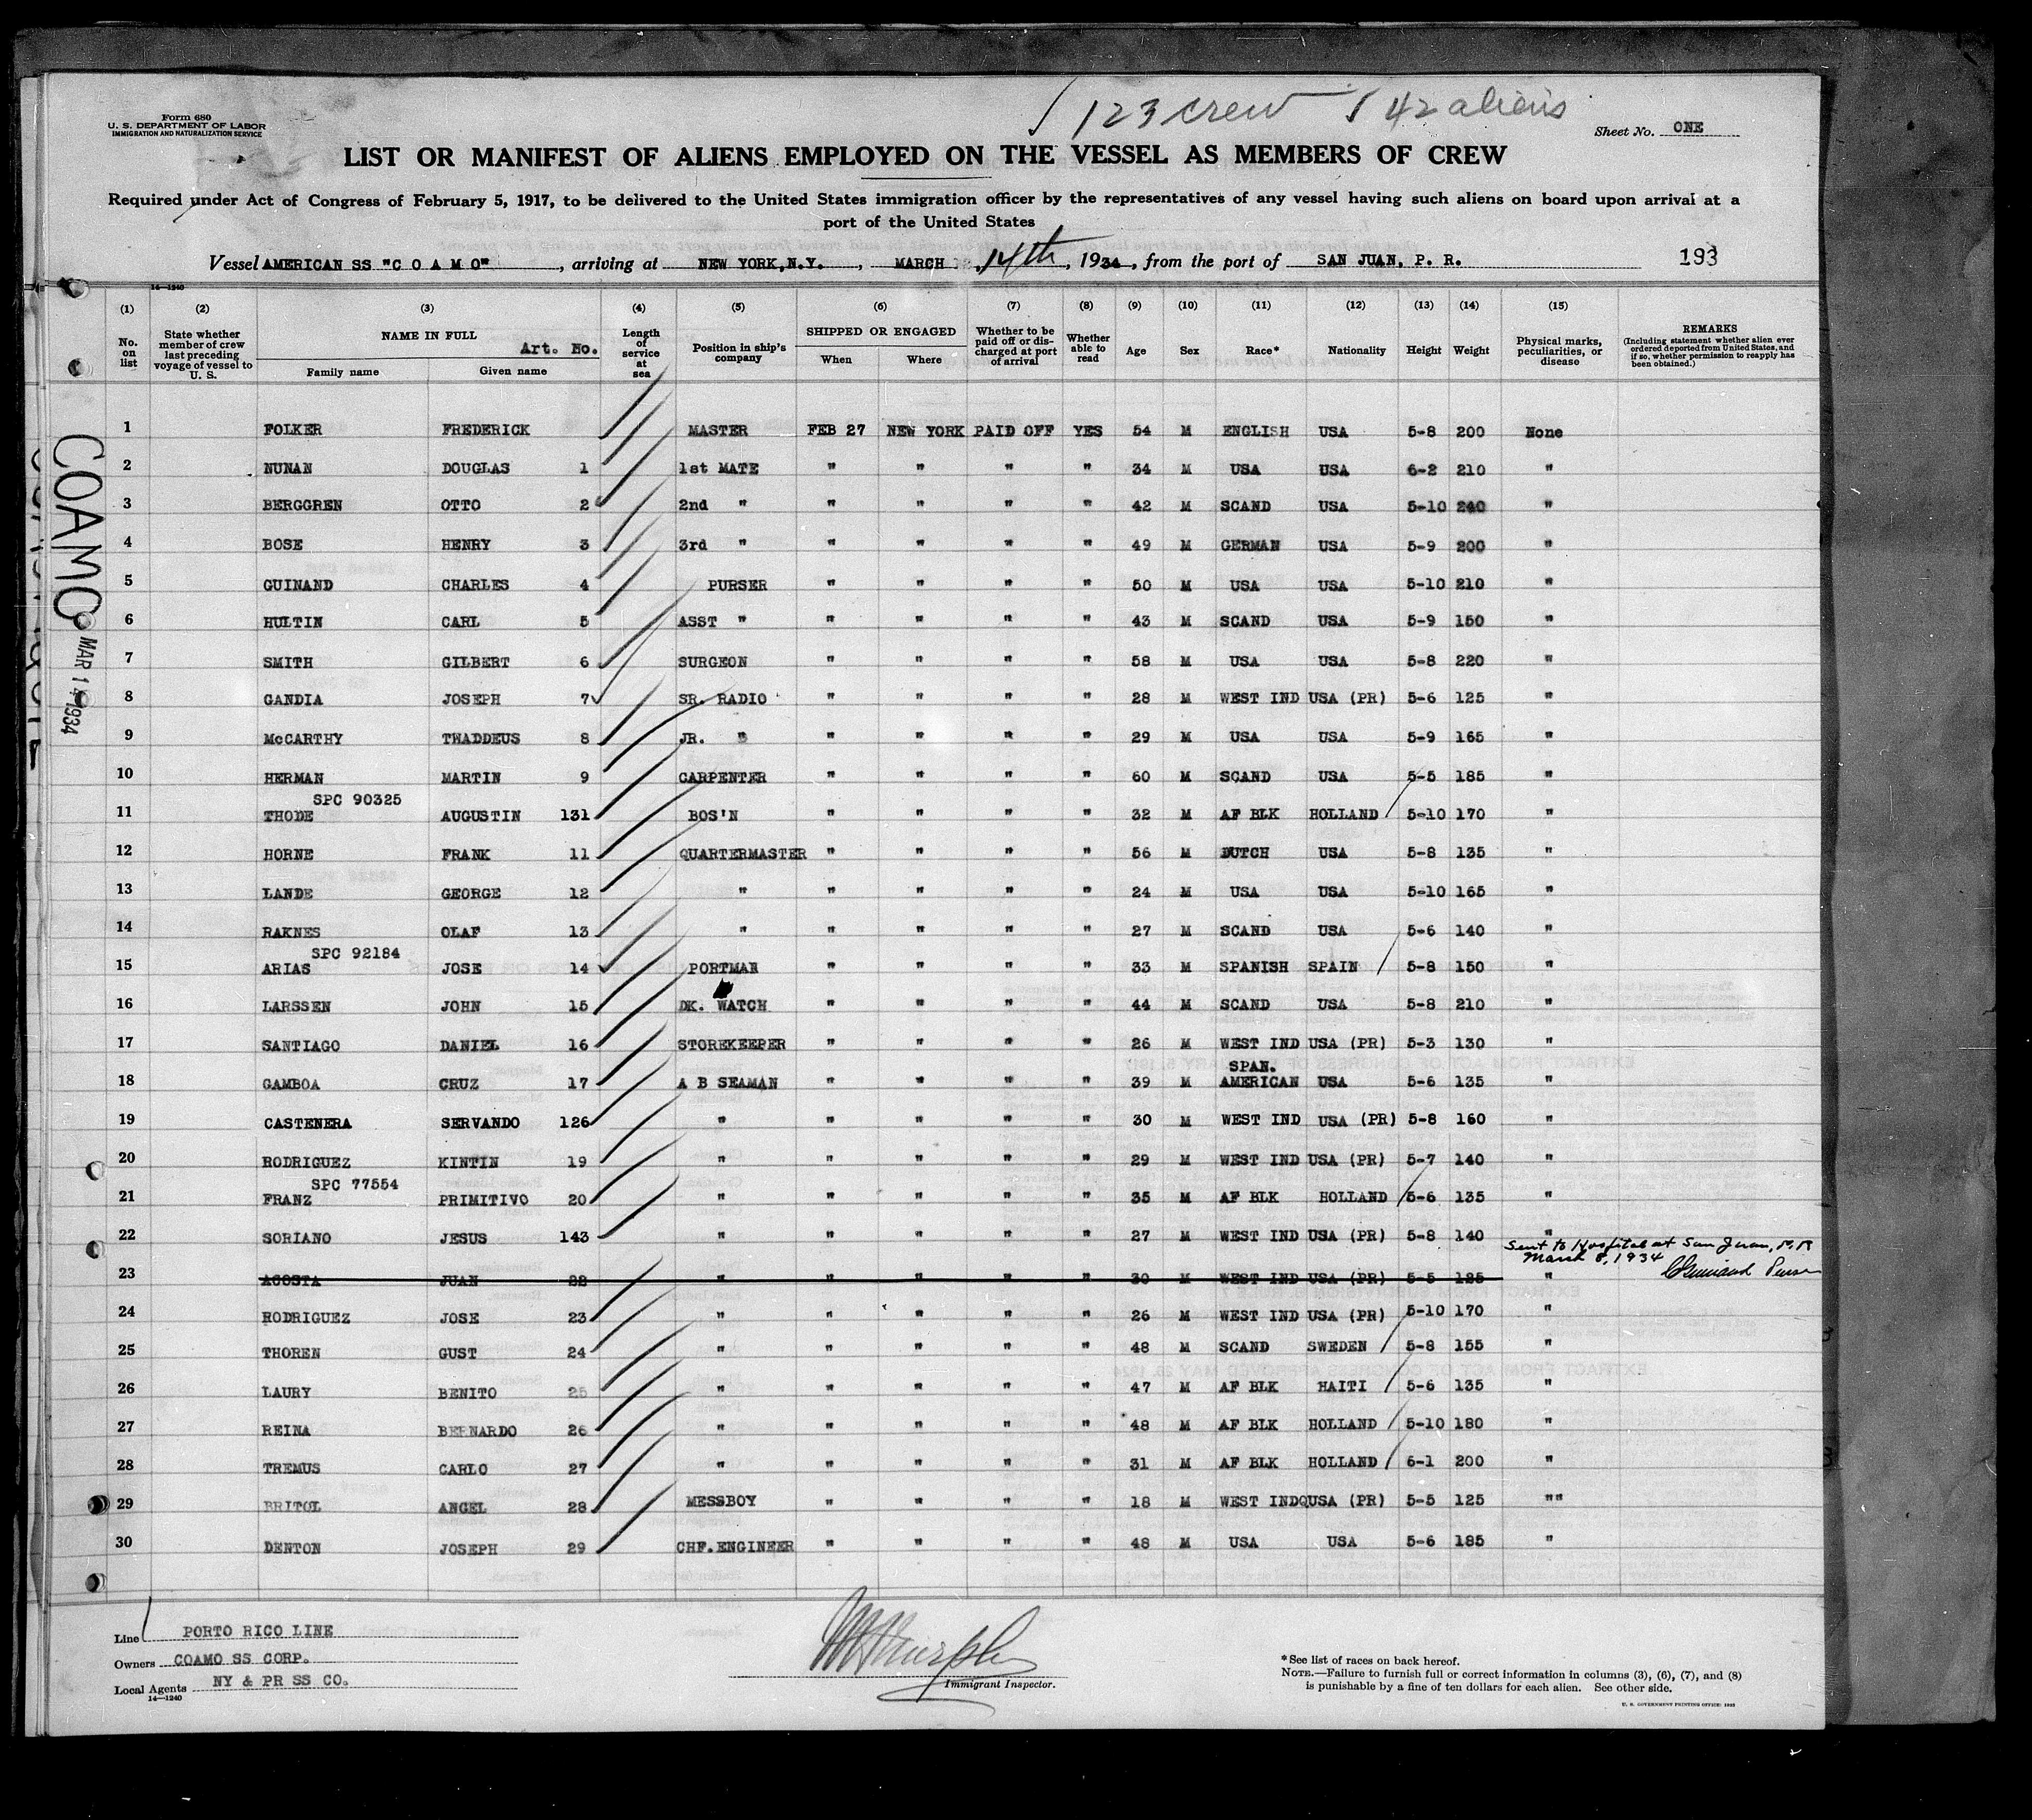 123 crew 42 aliens
Form 680
U. S. DEPARTMENT OF LABOR
IMMIGRATION AND NATURALIZATION SERVICE
Sheet No. ONE
LIST OR MANIFEST OF ALIENS EMPLOYED ON THE VESSEL AS MEMBERS OF CREW
Required under Act of Congress of February 5, 1917, to be delivered to the United States immigration officer by the representatives of any vessel having such aliens on board upon arrival at a
port of the United States
Vessel AMERICAN SS "C O A M O", arriving at NEW YORK, N.Y., MARCH 14th, 1934, from the port of SAN JUAN, P. R. 193
14—1240
(1) (2) (3) (4) (5) (6) (7) (8) (9) (10) (11) (12) (13) (14) (15)
No. on list | State whether member of crew last preceding voyage of vessel to U. S. | NAME IN FULL Art. No. Family name Given name | Length of service at sea | Position in ship's company | SHIPPED OR ENGAGED When Where | Whether to be paid off or discharged at port of arrival | Whether able to read | Age | Sex | Race* | Nationality | Height | Weight | Physical marks, peculiarities, or disease | REMARKS (Including statement whether alien ever ordered deported from United States, and if so, whether permission to reapply has been obtained.)
1 FOLKER FREDERICK MASTER FEB 27 NEW YORK PAID OFF YES 54 M ENGLISH USA 5-8 200 None
2 NUNAN DOUGLAS 1 1st MATE " " " " 34 M USA USA 6-2 210 "
3 BERGGREN OTTO 2 2nd " " " " " 42 M SCAND USA 5-10 240 "
4 BOSE HENRY 3 3rd " " " " " 49 M GERMAN USA 5-9 200 "
5 GUINAND CHARLES 4 PURSER " " " " 50 M USA USA 5-10 210 "
6 HULTIN CARL 5 ASST " " " " " 43 M SCAND USA 5-9 150 "
7 SMITH GILBERT 6 SURGEON " " " " 58 M USA USA 5-8 220 "
8 GANDIA JOSEPH 7 SR. RADIO " " " " 28 M WEST IND USA (PR) 5-6 125 "
9 McCARTHY THADDEUS 8 JR. " " " " " 29 M USA USA 5-9 165 "
10 HERMAN MARTIN 9 CARPENTER " " " " 60 M SCAND USA 5-5 185 "
SPC 90325
11 THODE AUGUSTIN 131 BOS'N " " " " 32 M AF BLK HOLLAND 5-10 170 "
12 HORNE FRANK 11 QUARTERMASTER " " " " 56 M DUTCH USA 5-8 135 "
13 LANDE GEORGE 12 " " " " " 24 M USA USA 5-10 165 "
14 RAKNES OLAF 13 " " " " " 27 M SCAND USA 5-6 140 "
SPC 92184
15 ARIAS JOSE 14 PORTMAN " " " " 33 M SPANISH SPAIN 5-8 150 "
16 LARSSEN JOHN 15 DK. WATCH " " " " 44 M SCAND USA 5-8 210 "
17 SANTIAGO DANIEL 16 STOREKEEPER " " " " 26 M WEST IND USA (PR) 5-3 130 "
SPAN.
18 GAMBOA CRUZ 17 A B SEAMAN " " " " 39 M AMERICAN USA 5-6 135 "
19 CASTENERA SERVANDO 126 " " " " " 30 M WEST IND USA (PR) 5-8 160 "
20 RODRIGUEZ KINTIN 19 " " " " " 29 M WEST IND USA (PR) 5-7 140 "
SPC 77554
21 FRANZ PRIMITIVO 20 " " " " " 35 M AF BLK HOLLAND 5-6 135 "
22 SORIANO JESUS 143 " " " " " 27 M WEST IND USA (PR) 5-8 140 "
Sent to Hospital at San Juan, P.R
March 8, 1934 CGuinand Purser
23 ACOSTA JUAN 22 " " " " " 30 M WEST IND USA (PR) 5-5 125 "
24 RODRIGUEZ JOSE 23 " " " " " 26 M WEST IND USA (PR) 5-10 170 "
25 THOREN GUST 24 " " " " " 48 M SCAND SWEDEN 5-8 155 "
26 LAURY BENITO 25 " " " " " 47 M AF BLK HAITI 5-6 135 "
27 REINA BERNARDO 26 " " " " " 48 M AF BLK HOLLAND 5-10 180 "
28 TREMUS CARLO 27 " " " " " 31 M AF BLK HOLLAND 6-1 200 "
29 BRITOL ANGEL 28 MESSBOY " " " " 18 M WEST IND USA (PR) 5-5 125 ""
30 DENTON JOSEPH 29 CHF. ENGINEER " " " " 48 M USA USA 5-6 185 "
COAMO
MAR 14 1934
Line PORTO RICO LINE
Owners COAMO SS CORP.
Local Agents NY & PR SS CO.
14—1240
Murphy
Immigrant Inspector.
*See list of races on back hereof.
NOTE.—Failure to furnish full or correct information in columns (3), (6), (7), and (8)
is punishable by a fine of ten dollars for each alien. See other side.
U. S. GOVERNMENT PRINTING OFFICE: 1932